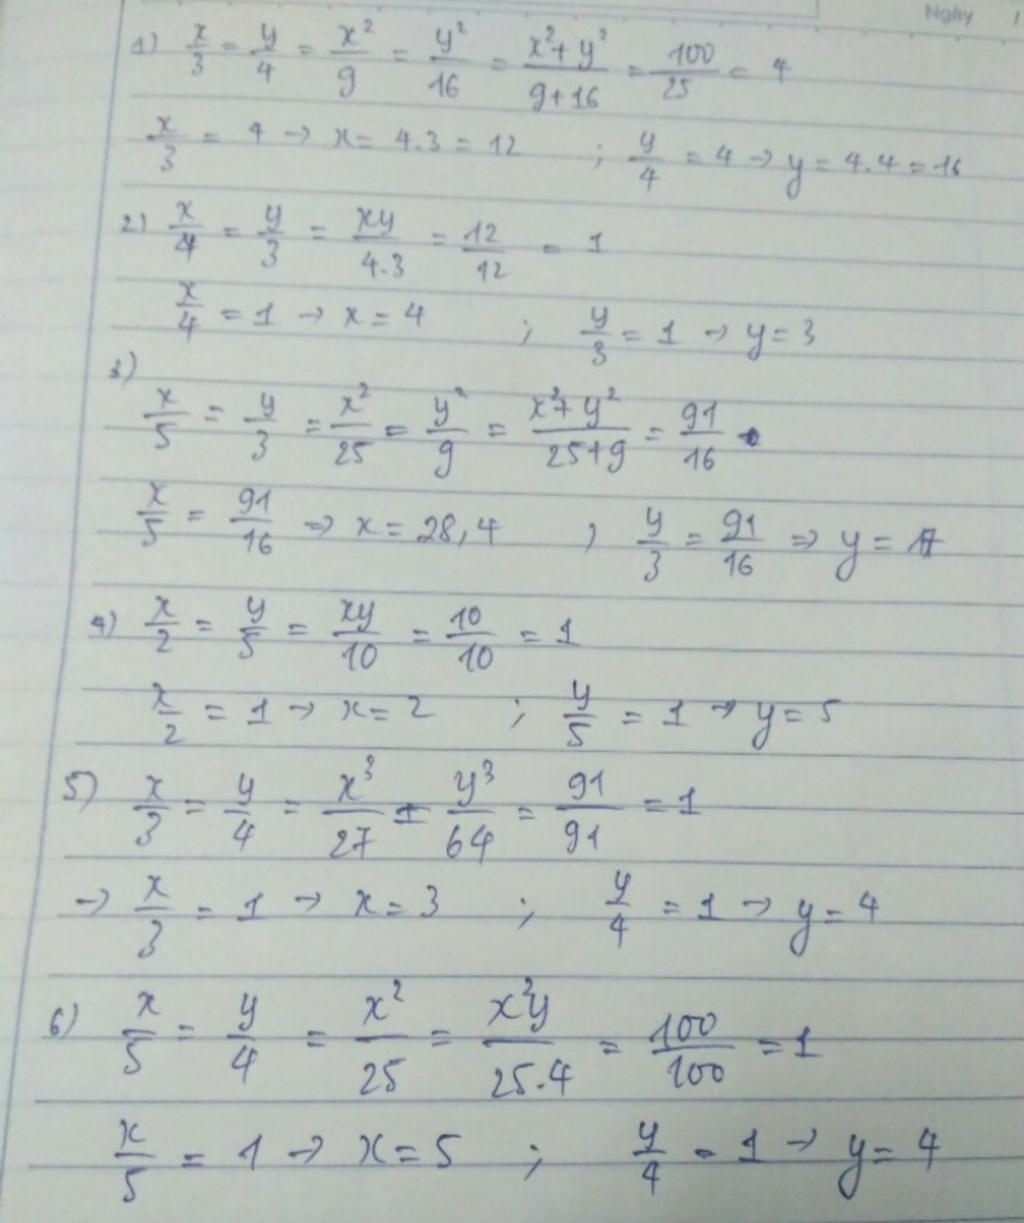 Ngày 1
1) x/3 = y/4 = x²/9 = y²/16 = x²+y²/9+16 = 100/25 = 4
x/3 = 4 → x = 4.3 = 12 ; y/4 = 4 → y = 4.4 = 16
2) x/4 = y/3 = xy/4.3 = 12/12 = 1
x/4 = 1 → x = 4 ; y/3 = 1 → y = 3
3)
x/5 = y/3 = x²/25 = y²/9 = x²+y²/25+9 = 91/16
x/5 = 91/16 => x = 28,4 ; y/3 = 91/16 => y = 17
4) x/2 = y/5 = xy/10 = 10/10 = 1
x/2 = 1 → x = 2 ; y/5 = 1 → y = 5
5) x/3 = y/4 = x³/27 = y³/64 = 91/91 = 1
→ x/3 = 1 → x = 3 ; y/4 = 1 → y = 4
6) x/5 = y/4 = x²/25 = x²y/25.4 = 100/100 = 1
x/5 = 1 → x = 5 ; y/4 = 1 → y = 4